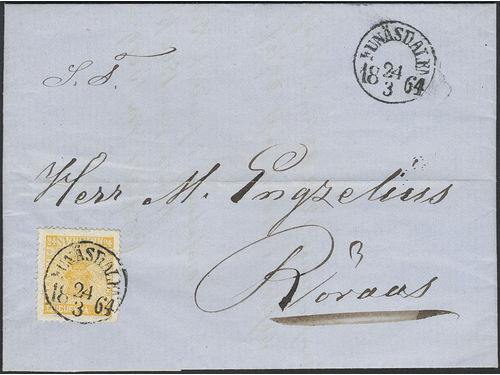 FUNÄSDALEN
18 24/3 64
S. T.
Herr M. Engzelius
Röraas
24 24
FUNÄSDALEN
18 24/3 64